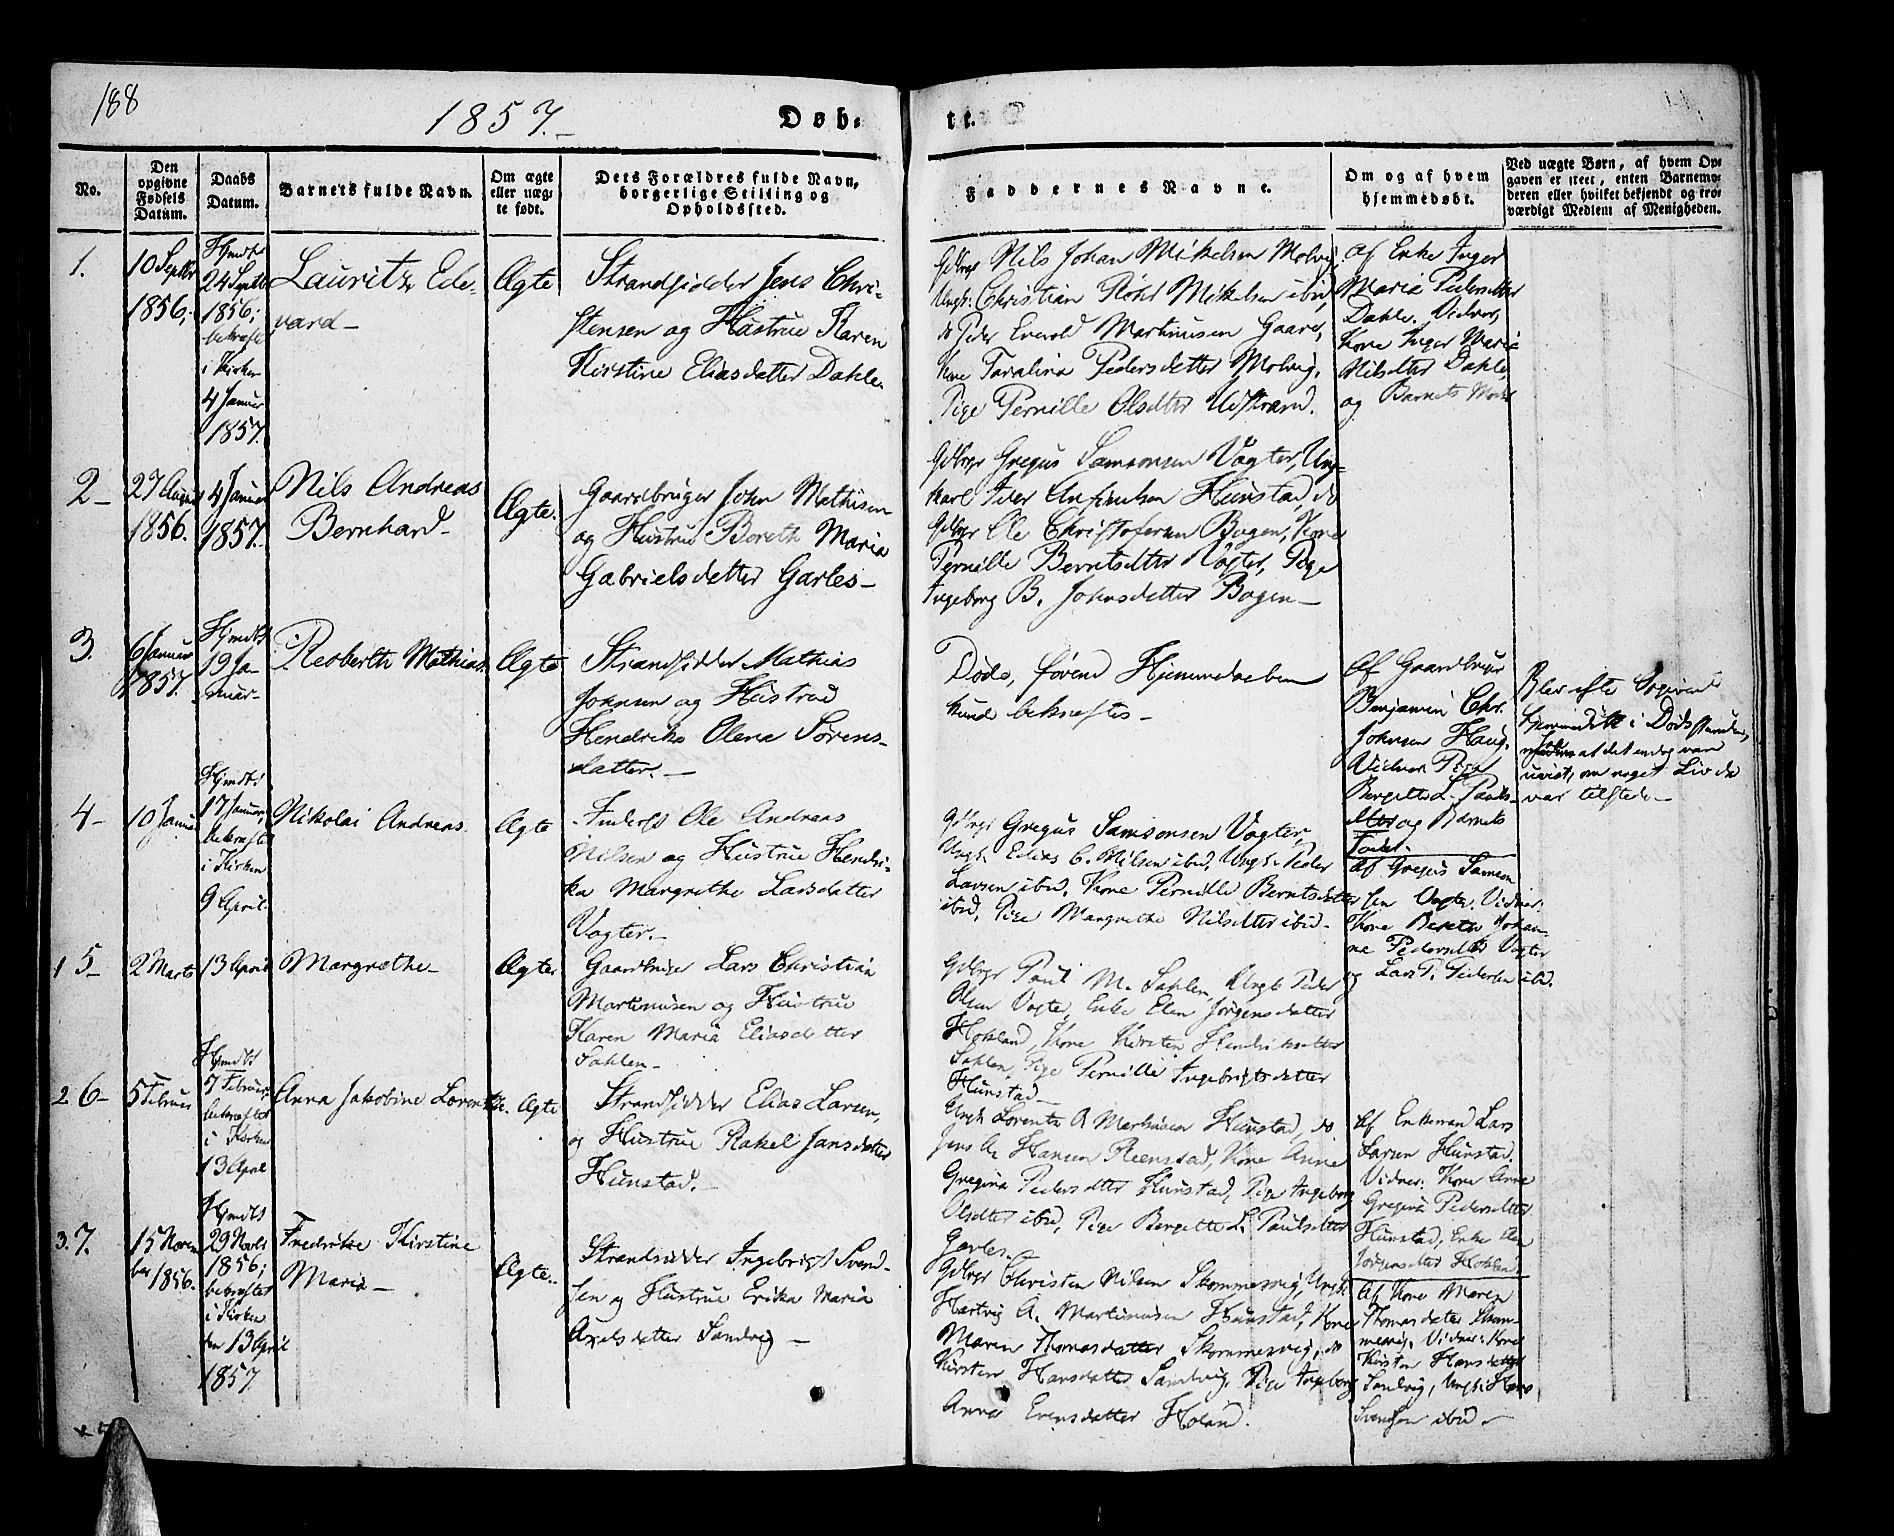 188
1857.
Døb-
te.
No.
Den opgivne Fødsels Datum.
Daabs Datum.
Barnets fulde Navn.
Om ægte eller uægte født.
Dets Forældres fulde Navn, borgerlige Stilling og Opholdssted.
Faddernes Navne.
Om og af hvem hjemmedøbt.
Ved uægte Børn, af hvem Opgaven er skeet, enten Barnemoderen eller hvilket bekjendt og troværdigt Medlem af Menigheden.
1.
10 Septbr
1856,
Hjmdbt
24 Septb
1856;
bekræftet
i Kirken
4 Januar
1857.
Lauritz Ede-
vard
Ægte
Strandsidder Jens Chri-
stensen og Hustrue Karen
Kirstine Eliasdatter Dahle.
Gdbrgr Nils Johan Mikelsen Molvig,
Ungk: Christian Røhr Mikelsen ibid,
do Peder Everold Martinusen Gaare,
Kone Taralina Pedersdatter Molvig,
Pige Pernille Olsdtter Udstrand.
Af Enke Inger
Maria Pedersdtter
Dahle. Vidner,
Kone Inger Maria
Nilsdtter Dahle,
og Barnets Moder
2
27 August
1856.
4 Januar
1857.
Nils Andreas
Bernhard
Ægte.
Gaardbruger John Mathisen
og Hustrue Bereth Maria
Gabrielsdatter Garles
Gdbrgr Gregus Samsonsen Vagter, Ung-
karl Iver Anfindsen Hunstad, do
Gdbrgr Ole Christofersen Bogen, Kone
Pernille Berntsdtter Vagter, Pige
Ingeborg B. Johnsdatter Bogen
3.
6 Januar
1857.
Hjmdbt
19 Ja-
nuar
Reoberth Mathias
Ægte
Strandsidder Mathias
Johnsen og Hustrue
Hendrika Olena Sørens-
datter.
Døde, førend Hjemmedaaben
kunde bekræftes
Af Gaardbruger
Benjamin Chr.
Johnsen Haug,
Vidner Pige
Bergitte L. Pauls-
dtter og Barnets
Fader.
Blev efter Opgivende
hjemmedøbt i Dødsstunden,
at det endog var
uvist, om noget Liv da
var tilstede
4
10 Januar
Hjmdbt
17 Januar,
bekræftet
i Kirken
9 April.
Nikolai Andreas
Ægte
Inderst Ole Andreas
Nilsen og Hustrue Hendri-
ka Margrethe Larsdatter
Vagter.
Gdbrgr Gregus Samsonsen Vagter,
Ungk. Edias C. Nilsen ibid, Ungk. Peder
Larsen ibid, Kone Pernille Berntsdatter
ibid, Pige Margrethe Nilsdtter ibid
Af Gregus Samson-
sen Vagter. Vidner:
Kone Bereth Johan-
na Pedersdtter Vagter
og Lars T. Pedersen ibid.
1 5
2 Marts
13 April
Margrethe
Ægte
Gaardbruger Lars Christian
Martinusen og Hustrue
Karen Maria Eliasdatter
Sahlen
Gdbrgr Paul M. Sahlen, Ungk Peder
Olsen Vagter, Enke Elen Jørgensdatter
Hokland, Kone Kirsten Hendriksdtter
Sahlen, Pige Pernille Ingebrigtsdatter
Hunstad
2 6
5 Februar
Hjmdbt
7 Februar,
bekræftet
i Kirken
13 April
Anna Jakobine Lorentze.
Ægte
Strandsidder Elias Larsen,
og Hustrue Rakel Jansdatter
Hunstad.
Ungk Lorents A Martinusen Hunstad, do
Jens A. Hansen Reenstad, Kone Anne
Gregina Pedersdtter Hunstad, Pige Ingeborg
Olsdtter ibid, Pige Bergitte L. Paulsdtter
Garles
Af Enkemand Lars
Larsen Hunstad.
Vidner: Kone Anne
Gregina Pedersdtter
Hunstad, Enke Elen
Jørgensdtter Hokland
3. 7.
15 Novem
ber 1856.
Hjmdbt
29 Novbr
1856;
bekræftet
i Kirken
den 13 April
1857
Fredrikke Kirstine
Maria
Ægte.
Strandsidder Ingebrigt Svend-
sen og Hustrue Erika Maria
Axelsdatter Sandvig
Gdbrgr Christen Nilsen Skommesvig, Ungk.
Hartvig A. Martinusen Hunstad, Kone
Maren Thomasdatter Skommesvig, do
Kirsten Hansdatter Sandvig, Pige Ingeborg
Anna Evensdatter Holand.
Af Kone Maren
Thomasdatter Skom-
mesvig. Vidner: Kone
Kirsten Hansdatter
Sandvig, Ungk: Hans
Svendsen ibid